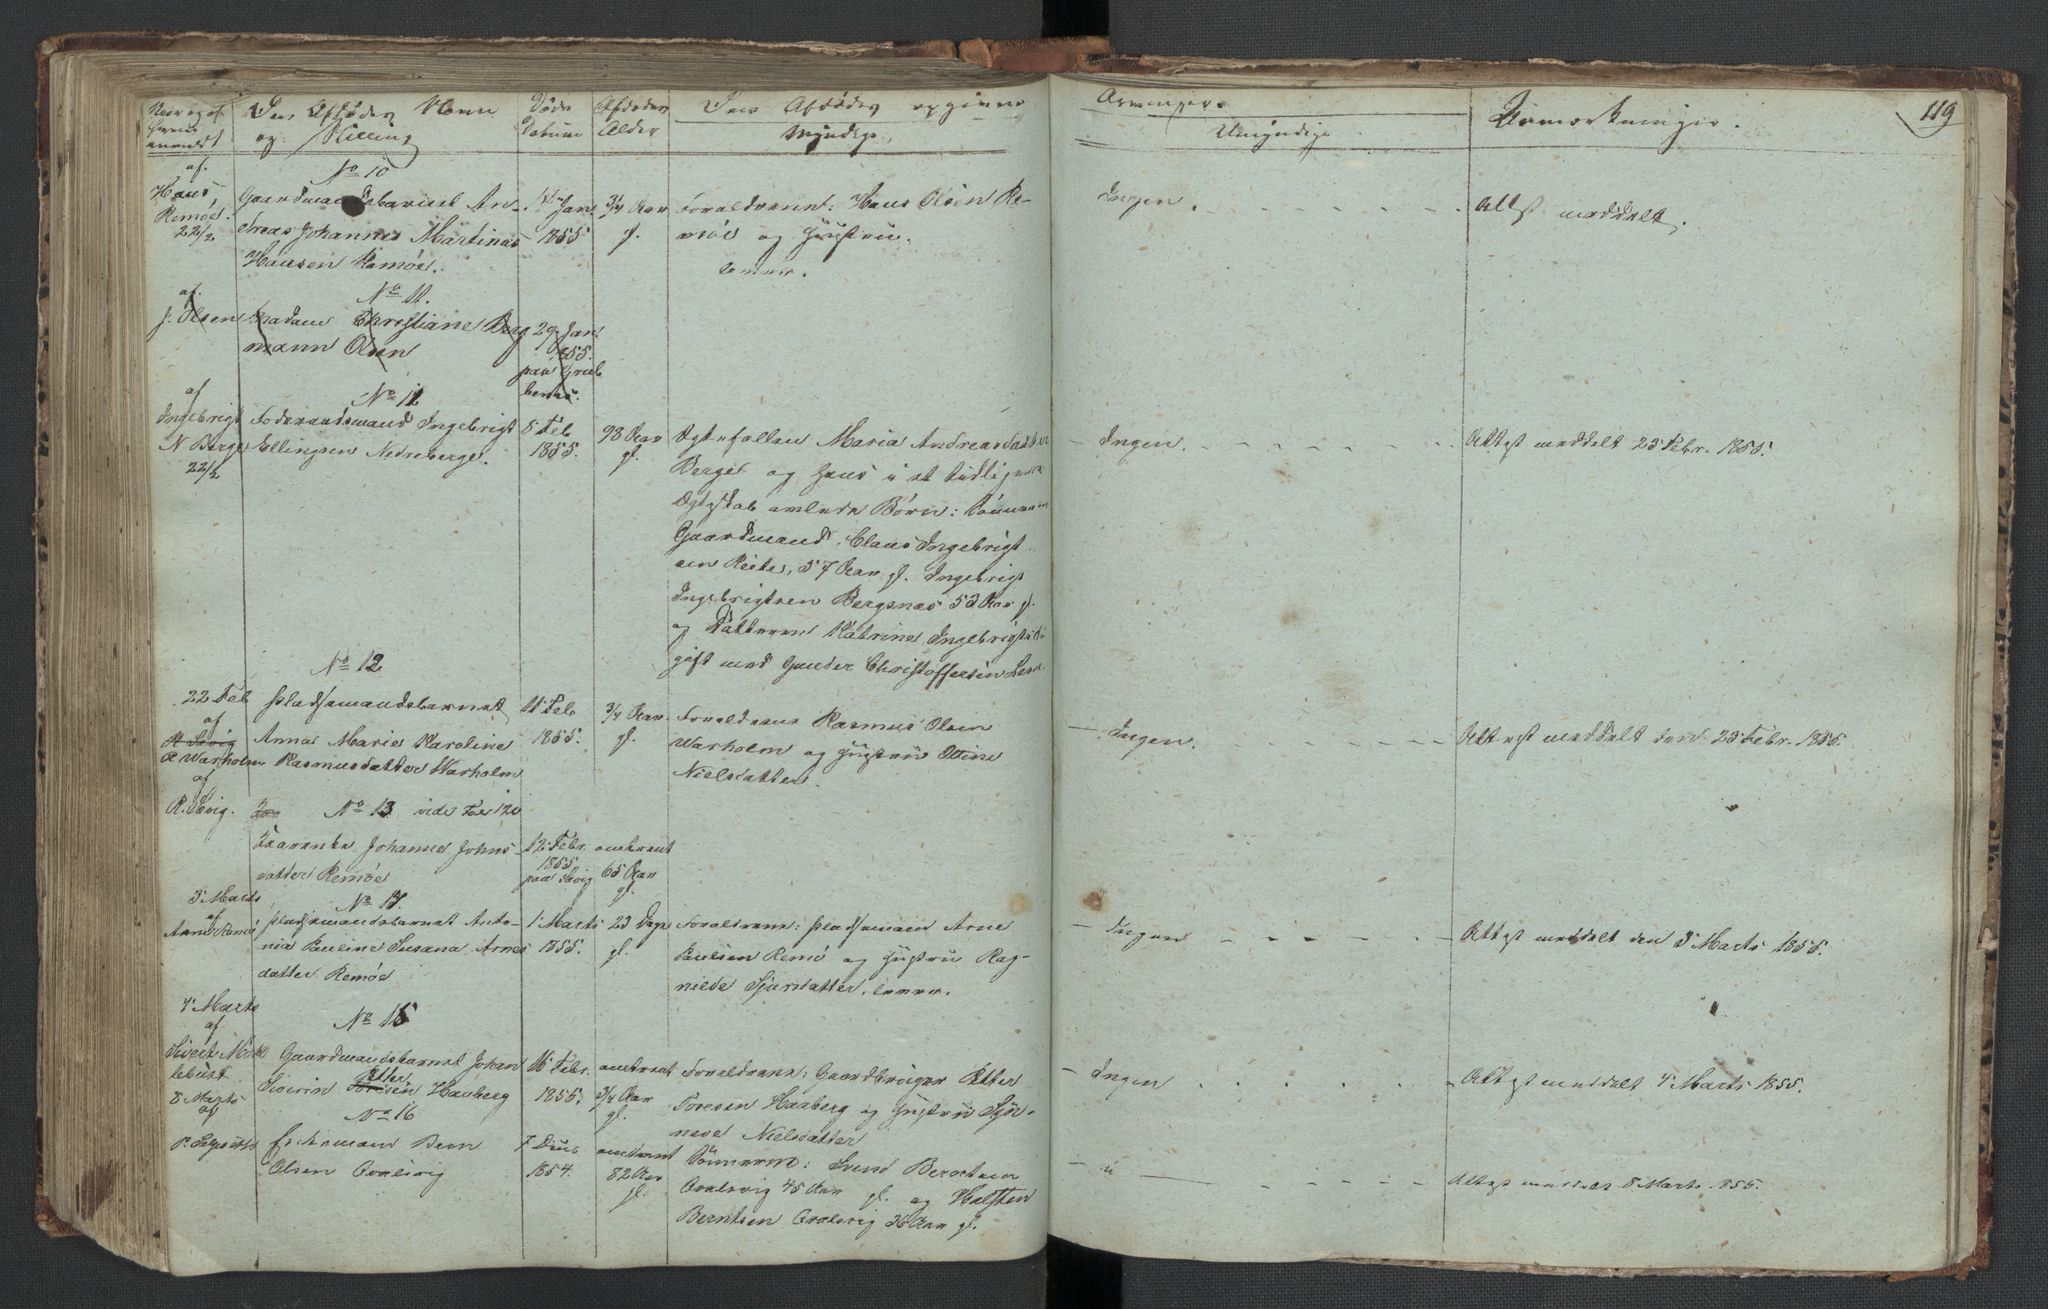 Den Afdødes Navn
og Stilling
Døds
Datum
Afdødes
Alder
Den Afdødes opgivne
Myndige
Arvinger.
Umyndige
Anmærkninger.
119
af
Hans
Remøe
22/2
No 10
Gaardmandsbarnet An-
dreas Johannes Martinus
Hansen Remøe.
Jan
1855
3/4 Aar
gl.
Forældrene: Hans Olsen Re-
møe og Hustru
Ingen
Attest meddelt.
af
J. Olsen
No 11.
Madam Christiane Berg
mann Olsen
29 Jan
1855.
paa
af
Ingebrigt
N Berge
22/2
No 11
Føderaadsmand Ingebrigt
Ellingsen Nedreberge.
5 Feb
1855.
98 Aar
gl.
Ægtefællen Maria Andreasdatter
Berge og Hans i et tidligere
Ægteskab avlede Børn: Sønnerne
Gaardmand Claus Ingebrigt
sen Reite, 57 Aar gl. Ingebrigt
Ingebrigtsen Bergsnes 53 Aar gl.
og Datteren Katrine Ingebrigtsd
gift med Gunder Christoffersen
Ingen.
Attest meddelt 23 Febr. 1855.
No 12
22 Feb
af
R Sævig
R Warholm
Pladsemandsbarnet
Anna Marie Karoline
Rasmusdatter Warholm
11 Feb
1855.
3/4 Aar
gl.
Forældrene Rasmus Olsen
Warholm og Hustru Oline
Nielsdatter.
Ingen.
Attest meddelt den 23 Febr. 1855.
af
R. Sævig.
No 13 vide Fol 120
Johanne Johns-
datter Remøe
12 Febr.
1855
paa Sævig
omtrent
65 Aar
gl.
3 Marts
af
Arne Remø
No 14.
Pladsemandsbarnet Anto-
nia Pauline Susana Arnes
datter Remøe
1 Marts
1855.
23 Dage
gl.
Forældrene: Pladsemand Arne
Paulsen Remø og Hustru Rag-
nilde Sjursdatter.
Ingen
Attest meddelt den 3 Marts 1855.
4 Marts
af
Sivert Mykle
lebust
No 15
Gaardmandsbarnet Johan
Severin Petter Toresen Haaberg
16 Febr.
1855.
omtrent
3/4 Aar
gl.
Forældrene: Gaardbruger Petter
Toresen Haaberg og Hustru Syn-
neve Nielsdatter
Ingen
Attest meddelt 4 Marts 1855.
8 Marts
af
No 16
Bern
Olsen Qvalsvig
7 Decb
1854.
omtrent
82 Aar
gl.
Sønnerne: Svend Berntsen
Qvalsvig 45 Aar gl. og Halsten
Berntsen Qvalsvig 36 Aar gl.
Attest meddelt 8 Marts 1855.